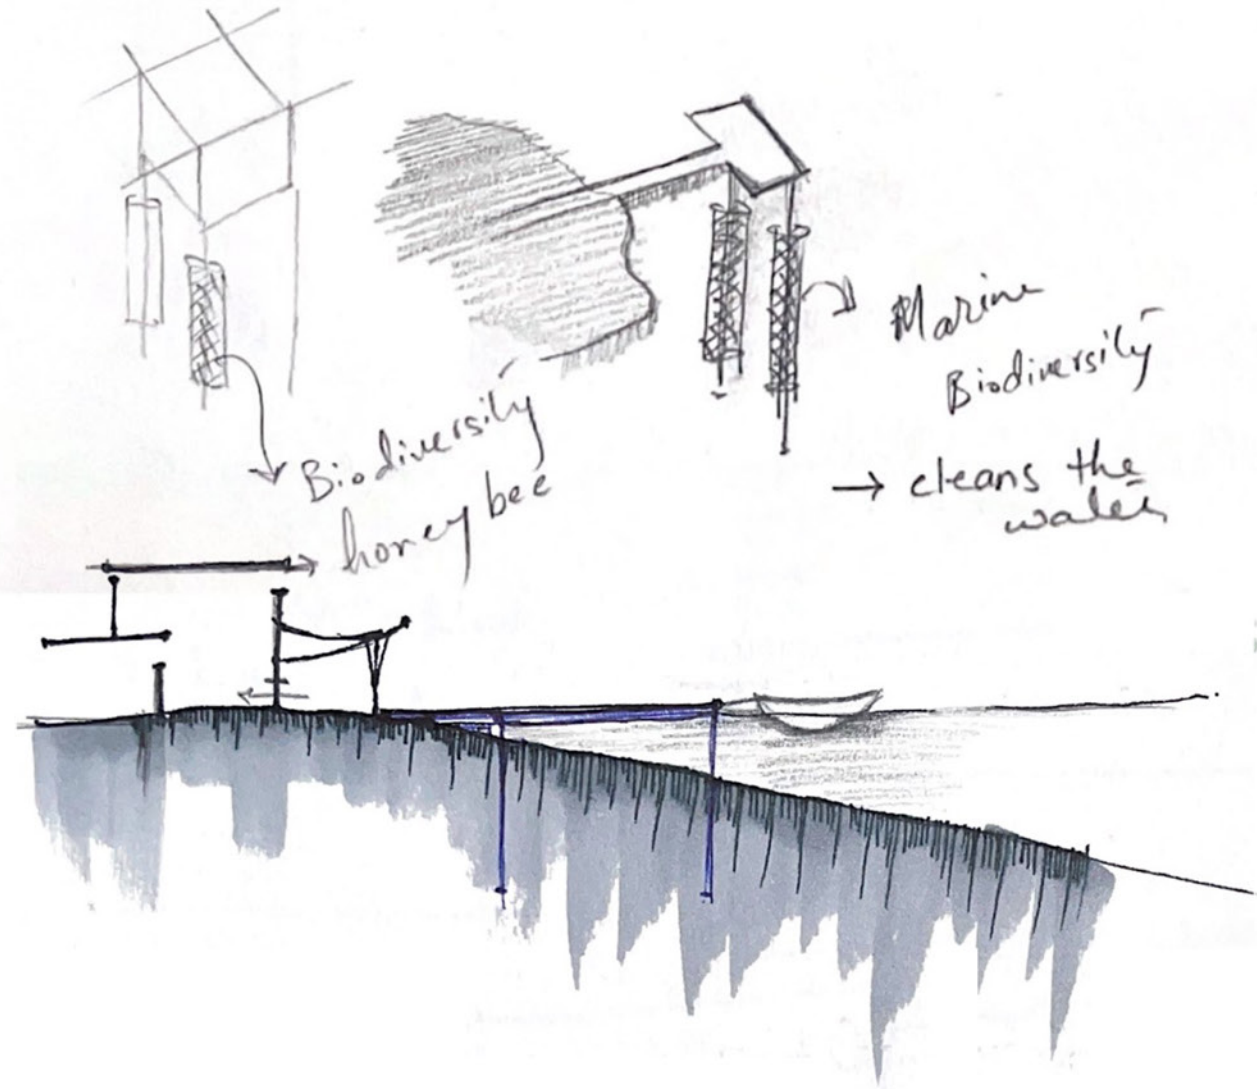 Biodiversity
honey bee
Marine
Biodiversity
→ cleans the
water